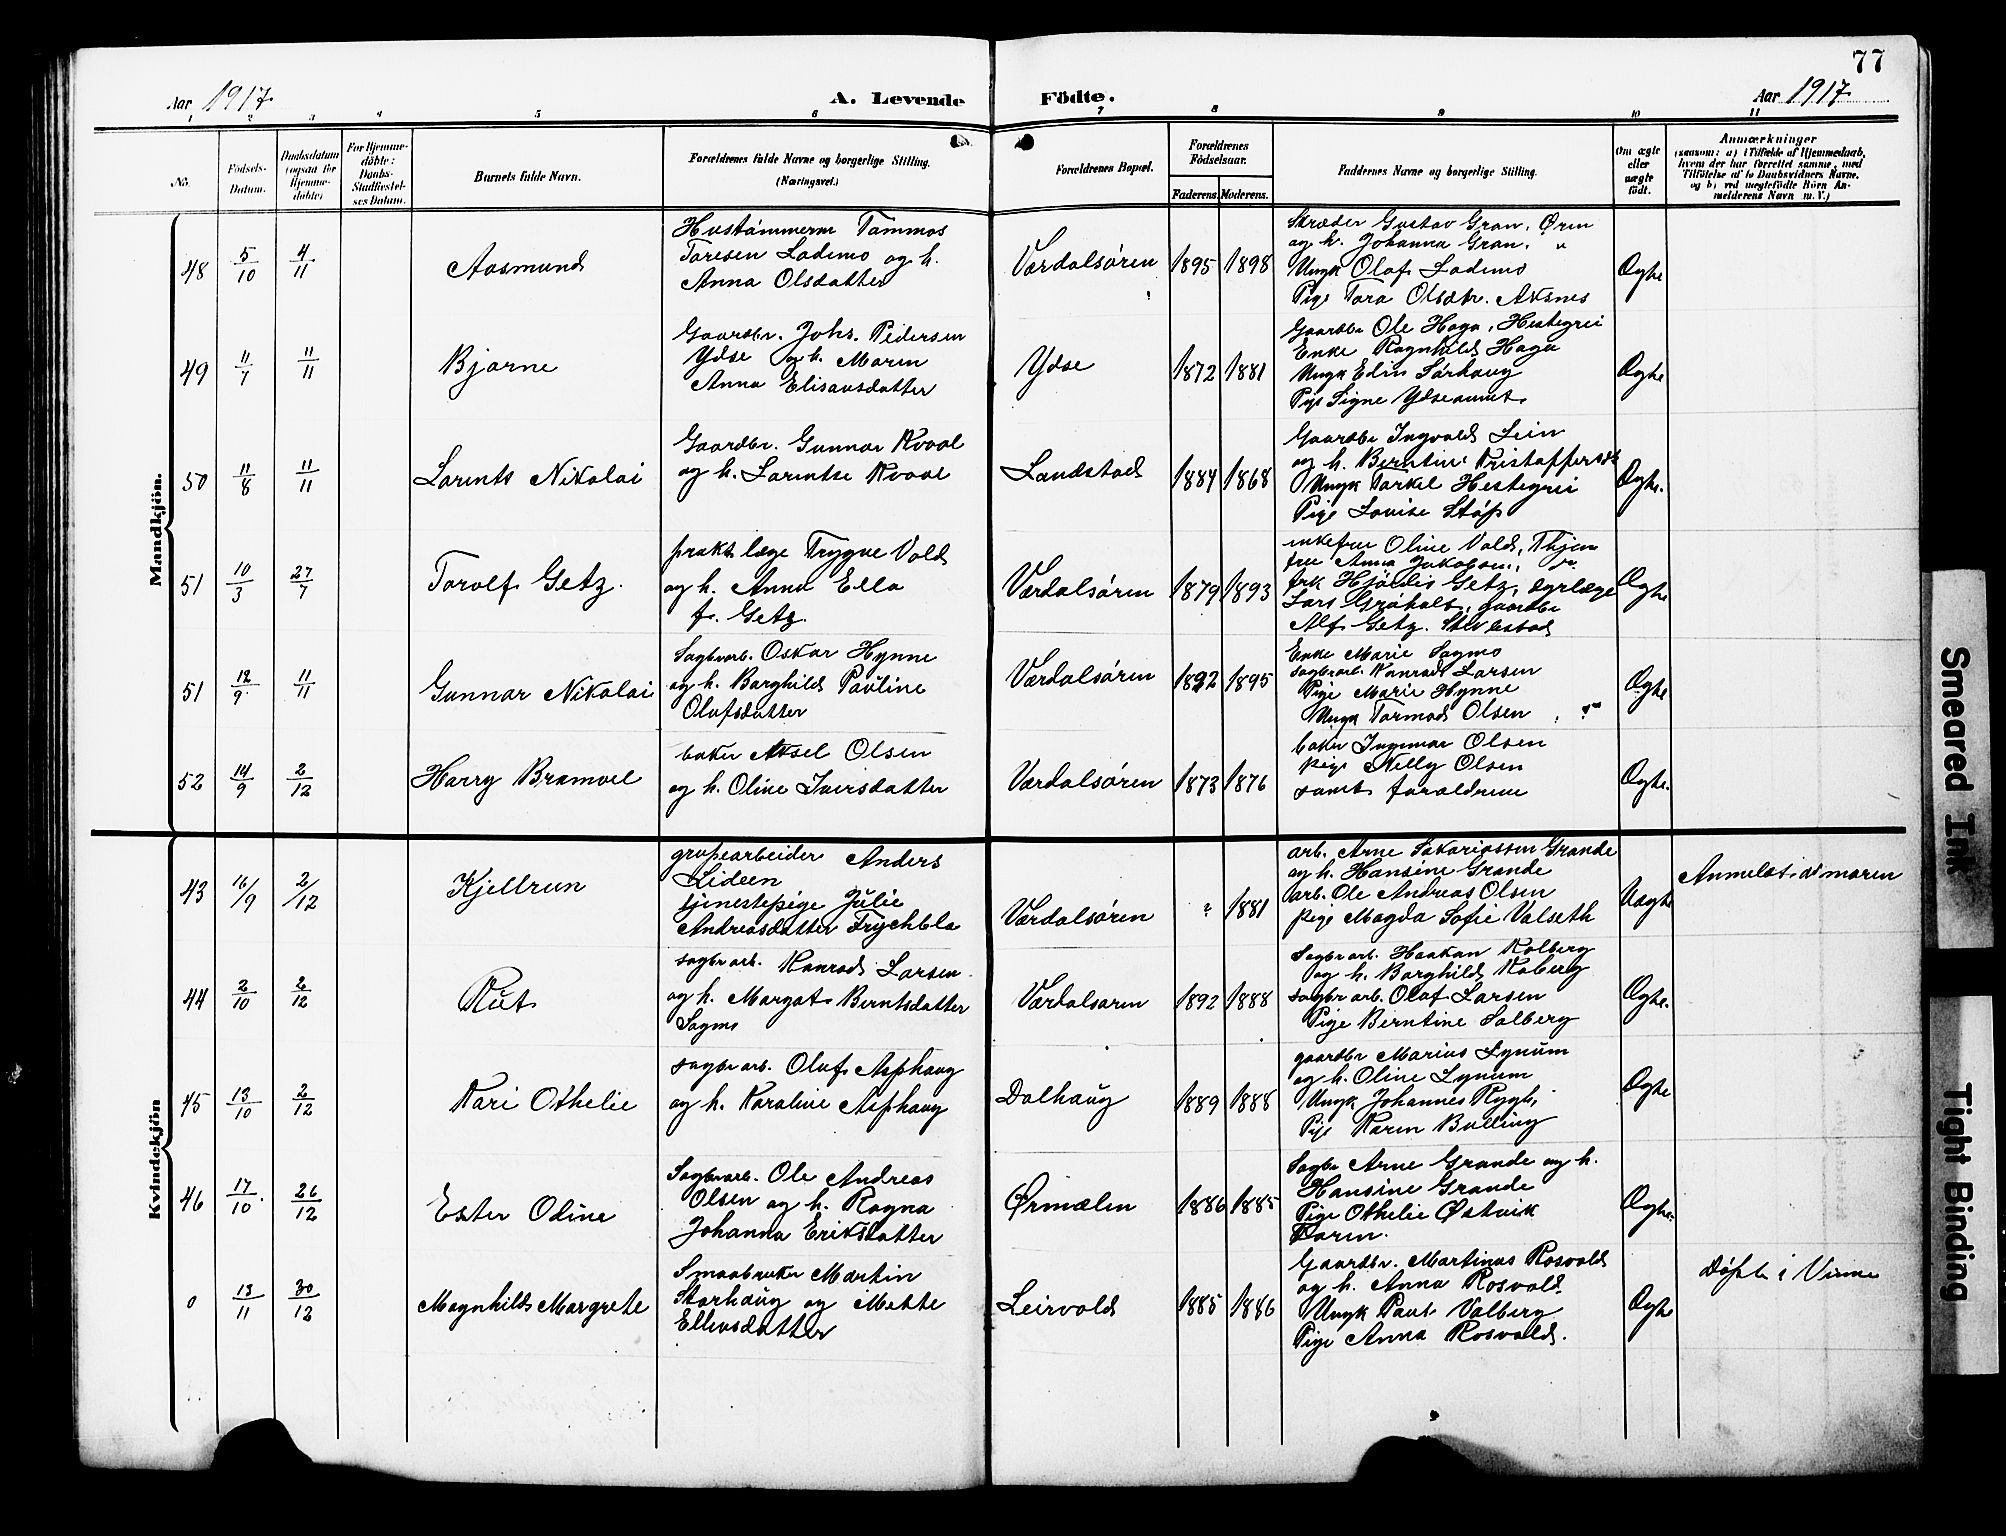 77
Aar 1917
A. Levende Födte.
Aar 1917
1 2 3 4 5 6 7 8 9 10 11
No.
Födsels-Datum.
Daabsdatum (ogsaa for Hjemme-döbte)
For Hjemme-döbte: Daabs-Stadfæstel-ses Datum.
Barnets fulde Navn.
Forældrenes fulde Navne og borgerlige Stilling.
(Næringsvei.)
Forældrenes Bopæl.
Forældrenes Födselsaar.
Faderens. Moderens.
Faddernes Navne og borgerlige Stilling.
Om ægte eller uægte födt.
Anmærkninger
(saasom: a) i Tilfælde af Hjemmedaab,
hvem der har forrettet samme, med
Tilföielse af to Daabsvidners Navne,
og b) ved uægtefödte Börn An-
melderens Navn m. V.)
Mandkjön.
48 5/10 4/11 Aasmund
Hustömmerm Tommos
Toresen Lademo og h.
Anna Olsdatter
Værdalsören 1895 1898
Skræder Gustav Gran, Ören
og h. Johanna Gran. "
Ungk Olaf Lademo
Pige Tora Olsdtr. Aksnes
Ægte
49 11/7 11/11 Bjarne
Gaardbr. Johs. Pedersen
Ydse og h. Maren
Anna Elisausdatter
Ydse 1872 1881
Gaardbr Ole Haga, Hestegrei
Enke Ragnhild Haga
Ungk Edin Sörhaug
Pige Signe Ydseaunet
Ægte
50 11/8 11/11 Lorents Nikolai
Gaardbr. Gunnar Kvaal
og h. Lorentse Kvaal
Landstad 1884 1868
Gaardbr Ingvald Lein
og h. Berntine Kristoffersdt
Ungk Torkel Hestegrei
Pige Lovise Stöp
Ægte.
51 10/3 27/7 Torolf Getz.
prakt. læge Trygve Vold
og h. Anna Ella
f. Getz.
Værdalsören 1879 1893
enkefru Oline Vold,
fru Anna Jakobsen,
frk Hjördis Getz, dyrlæge
Lars Gröholt, gaardbr
Alf Getz. Stiklestad
Ægte
51 12/9 11/11 Gunnar Nikolai
Sagbrarb. Oskar Hynne
og h. Borghild Pauline
Olufsdatter
Værdalsören 1892 1895
Enke Marie Sagmo
sagbrarb. Konrad Larsen
Pige Marie Hynne
Ungk Tormod Olsen
Ægte
52 14/9 2/12 Harry Bramvel
baker Aksel Olsen
og h. Oline Iversdatter
Værdalsören 1873 1876
baker Ingemar Olsen
pige Nelly Olsen
samt foreldrene
Ægte.
Kvindekjön
43 16/9 2/12 Kjellrun
grubearbeider Anders
Lideen
tjenestepige Julie
Andreasdatter Frychbla
Værdalsören ? 1881
arb. Arne Sakariassen Grande
og h. Hansine Grande
arb. Ole Andreas Olsen
pige Magda Sofie Valseth
Uægte
Anmeldt av moren
44 2/10 2/12 Rut
sagbrarb. Konrad Larsen
og h. Margot Berntsdatter
Sagmo
Værdalsören 1892 1888
Sagbrarb. Haakon Kolberg
og h. Borghild Kolberg
sagbrarb. Olaf Larsen
Pige Berntine Solberg
Ægte.
45 13/10 2/12 Kari Othelie
sagbrarb. Oluf Asphaug
og h. Karoline Asphaug
Dalhaug 1889 1888
gaardbr Marius Lynum
og h. Oline Lynum
Ungk Johannes Rygh,
Pige Karen Bulling
Ægte
46 17/10. 26/12 Ester Odine
Sagbrarb. Ole Andreas
Olsen og h. Ragna
Johanna Eriksdatter
Örmælen 1886 1885
Sagbr Arne Grande og h.
Hansine Grande
Pige Othelie Östvik
Faren.
Ægte.
0 13/11 30/12 Magnhild Margrete
Smaabruker Martin
Storhaug og Mette
Ellevsdatter
Leirvold 1885 1886
Gaardbr. Martinus Rosvold
og h. Anna Rosvold.
Ungk Paul Valberg
Pige Anna Rosvold.
Ægte
Döpt i Vinne
Smeared Ink
Tight Binding